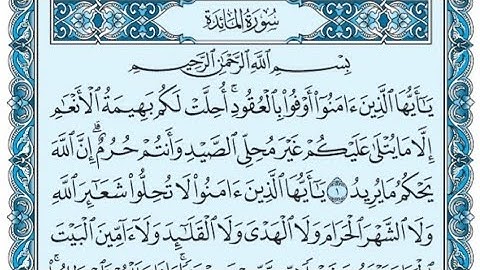 سُورَةُ الْمَائِدَةِ
بِسْمِ ٱللَّهِ ٱلرَّحْمَٰنِ ٱلرَّحِيمِ
يَـٰٓأَيُّهَا ٱلَّذِينَ ءَامَنُوٓا۟ أَوْفُوا۟ بِٱلْعُقُودِ ۚ أُحِلَّتْ لَكُم بَهِيمَةُ ٱلْأَنْعَـٰمِ
إِلَّا مَا يُتْلَىٰ عَلَيْكُمْ غَيْرَ مُحِلِّى ٱلصَّيْدِ وَأَنتُمْ حُرُمٌ ۗ إِنَّ ٱللَّهَ
يَحْكُمُ مَا يُرِيدُ ١ يَـٰٓأَيُّهَا ٱلَّذِينَ ءَامَنُوا۟ لَا تُحِلُّوا۟ شَعَـٰٓئِرَ ٱللَّهِ
وَلَا ٱلشَّهْرَ ٱلْحَرَامَ وَلَا ٱلْهَدْىَ وَلَا ٱلْقَلَـٰٓئِدَ وَلَآ ءَآمِّينَ ٱلْبَيْتَ